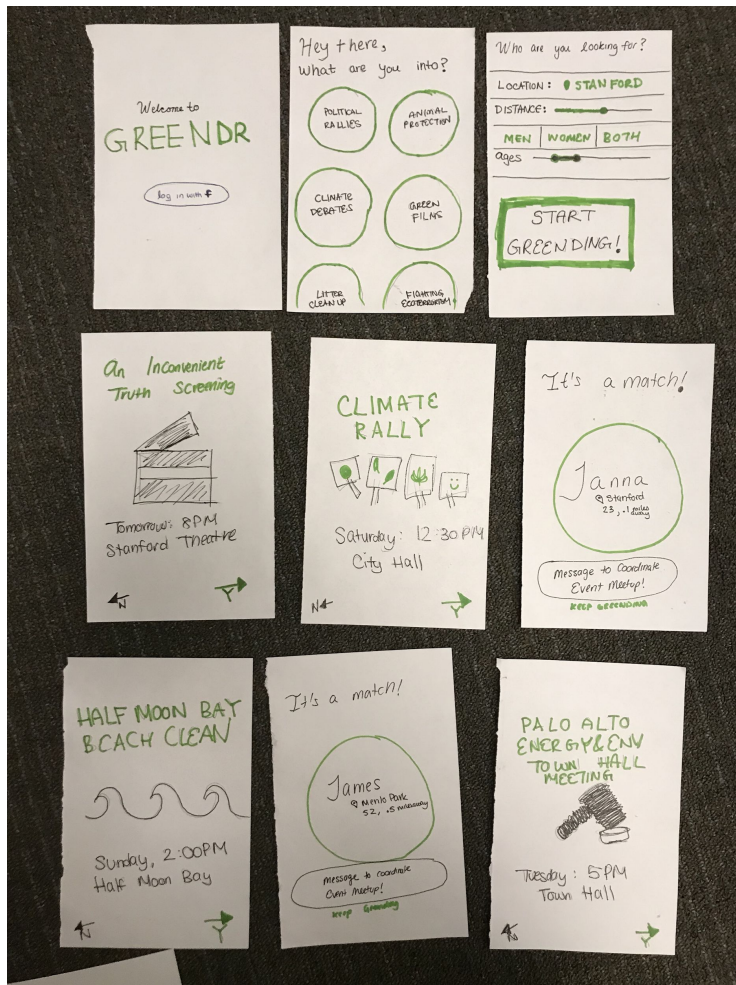 Welcome to
GREENDR
log in with f
Hey there,
What are you into?
POLITICAL
RALLIES
ANIMAL
PROTECTION
CLIMATE
DEBATES
GREEN
FILMS
LITTER
CLEAN UP
FIGHTING
ECOTERRORISM
Who are you looking for?
LOCATION: STANFORD
DISTANCE:
MEN WOMEN BOTH
ages
START
GREENDING!
An Inconvenient
Truth Screening
Tomorrow: 8PM
Stanford Theatre
N Y
CLIMATE
RALLY
Saturday: 12:30 PM
City Hall
N Y
It's a match!
Janna
@ Stanford
23, .1 miles
away
Message to Coordinate
Event Meetup!
KEEP GREENDING
HALF MOON BAY
BEACH CLEAN
Sunday, 2:00PM
Half Moon Bay
N Y
It's a match!
James
@ Menlo Park
52, .5 miles away
message to coordinate
Event Meetup!
Keep Greending
PALO ALTO
ENERGY & ENV
TOWN HALL
MEETING
Tuesday: 5PM
Town Hall
N Y